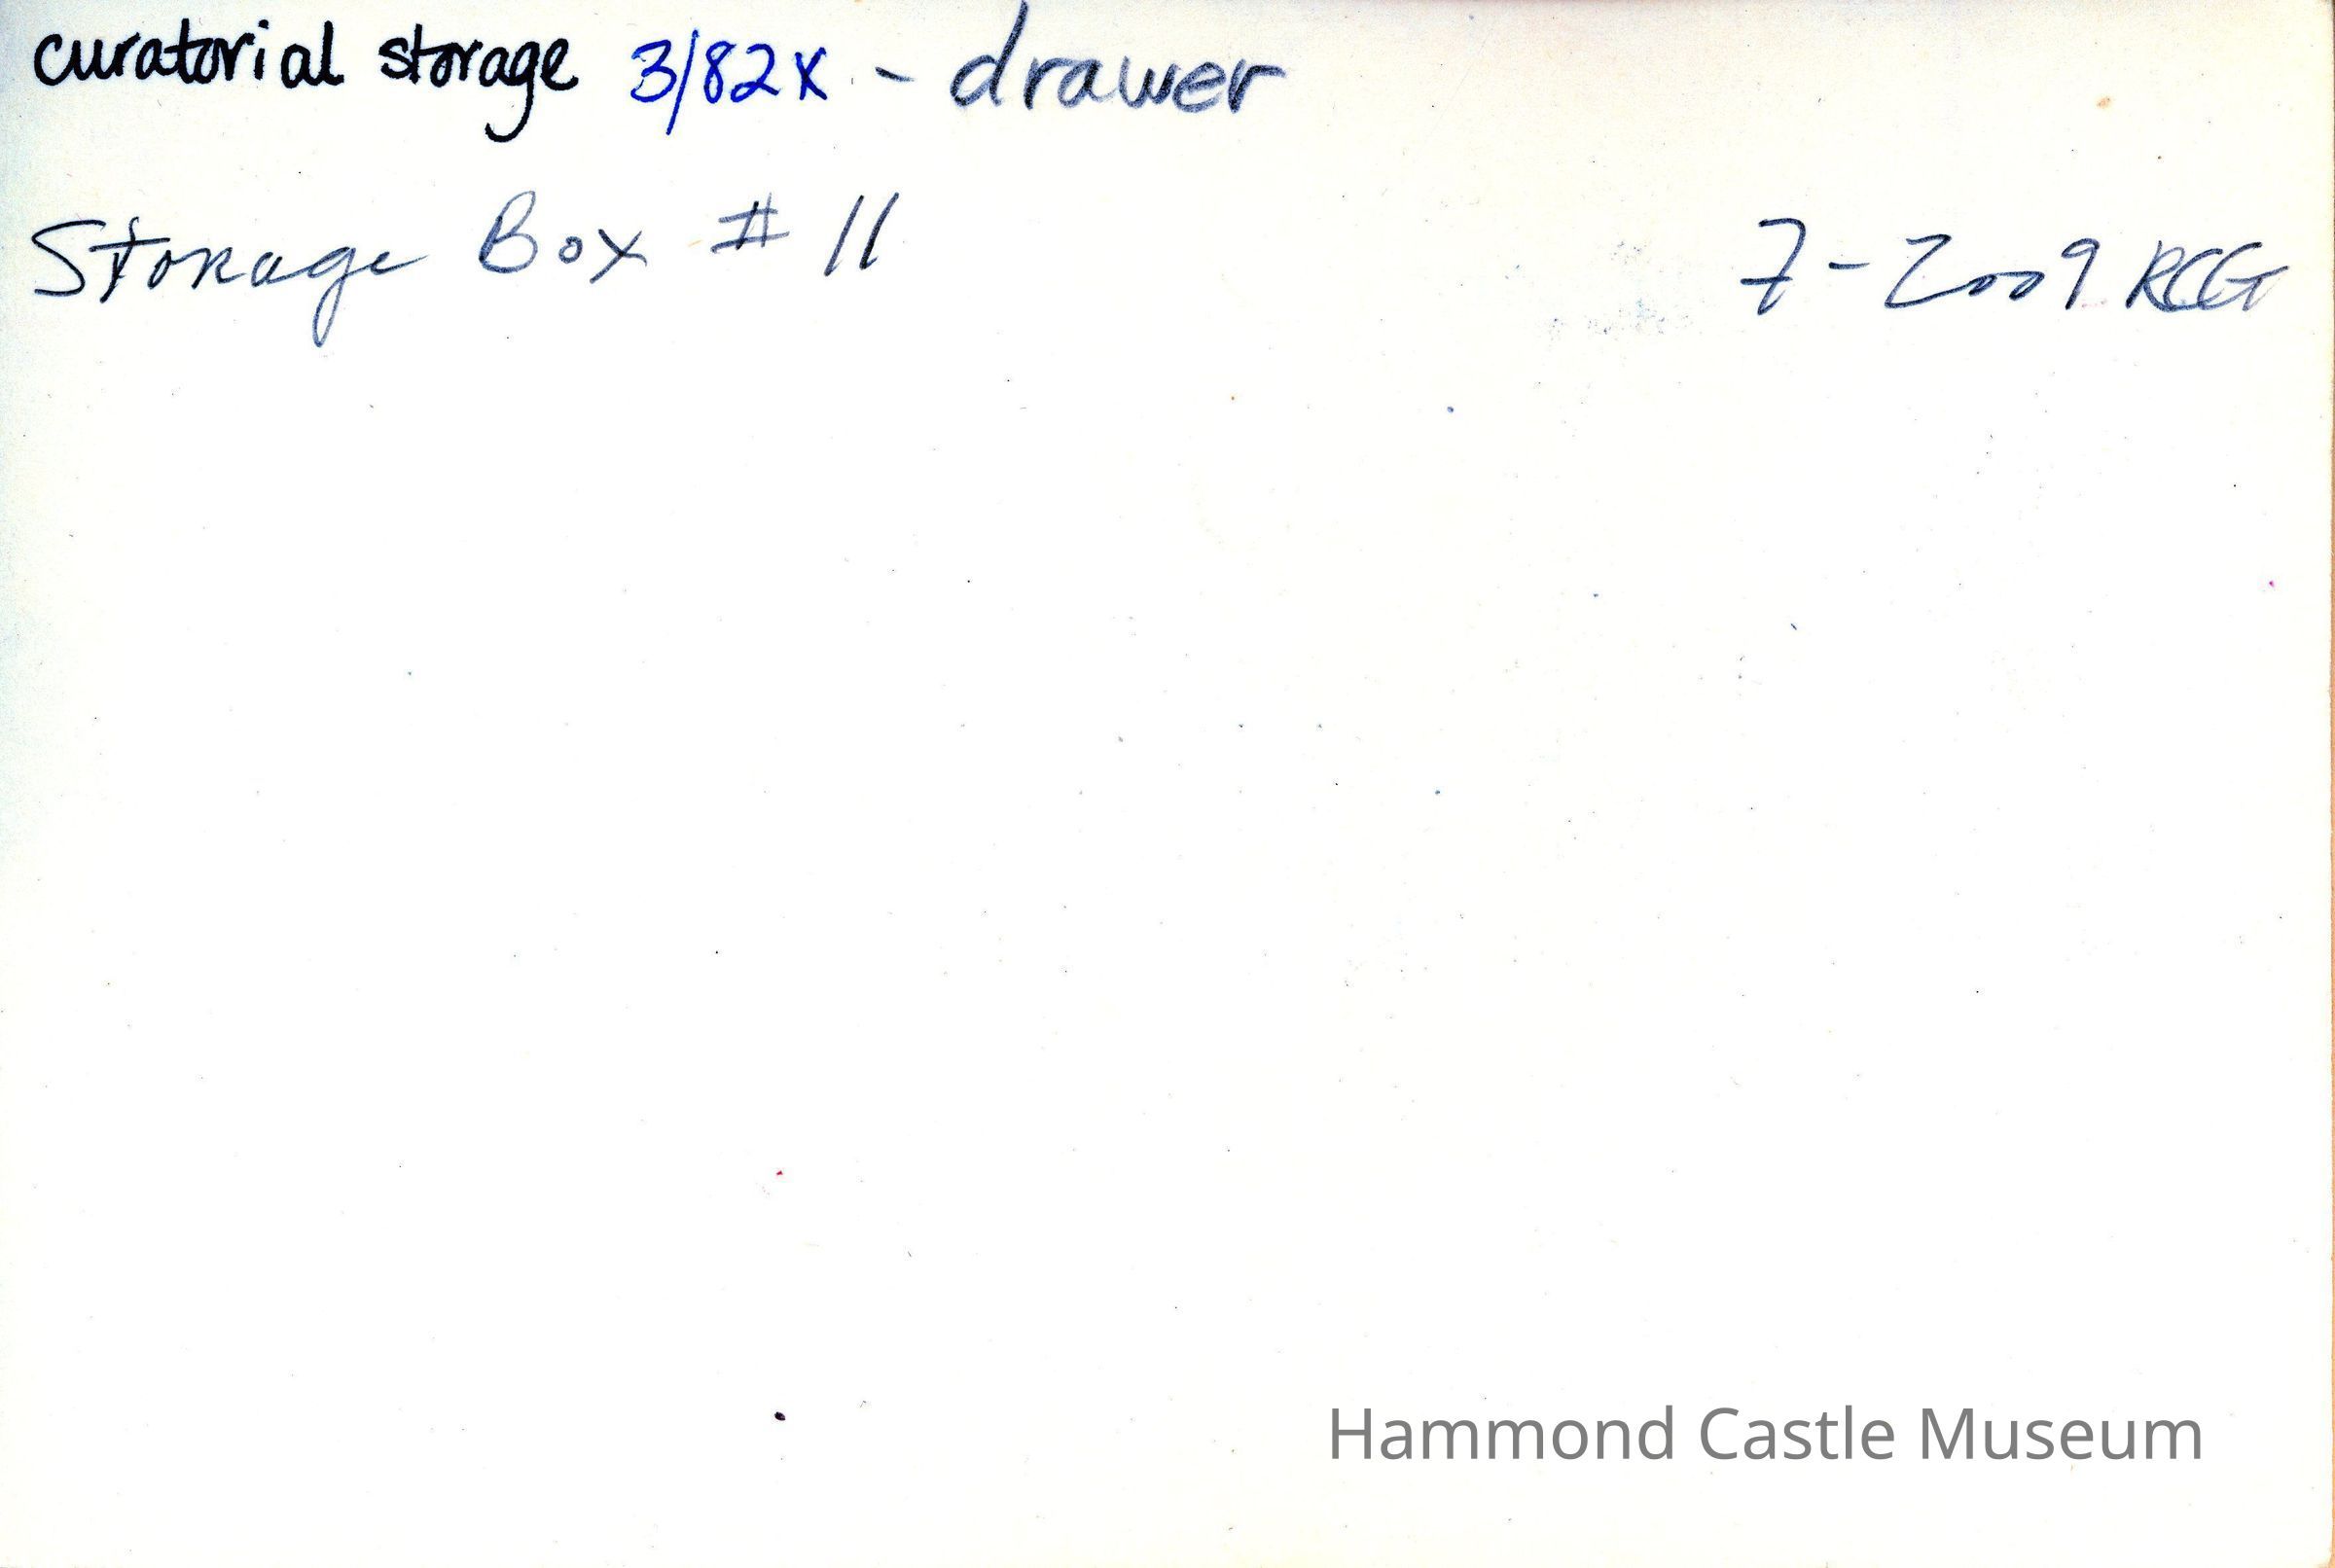 curatorial storage 3/82x - drawer
Storage Box # 11 7-2009 RCG
Hammond Castle Museum